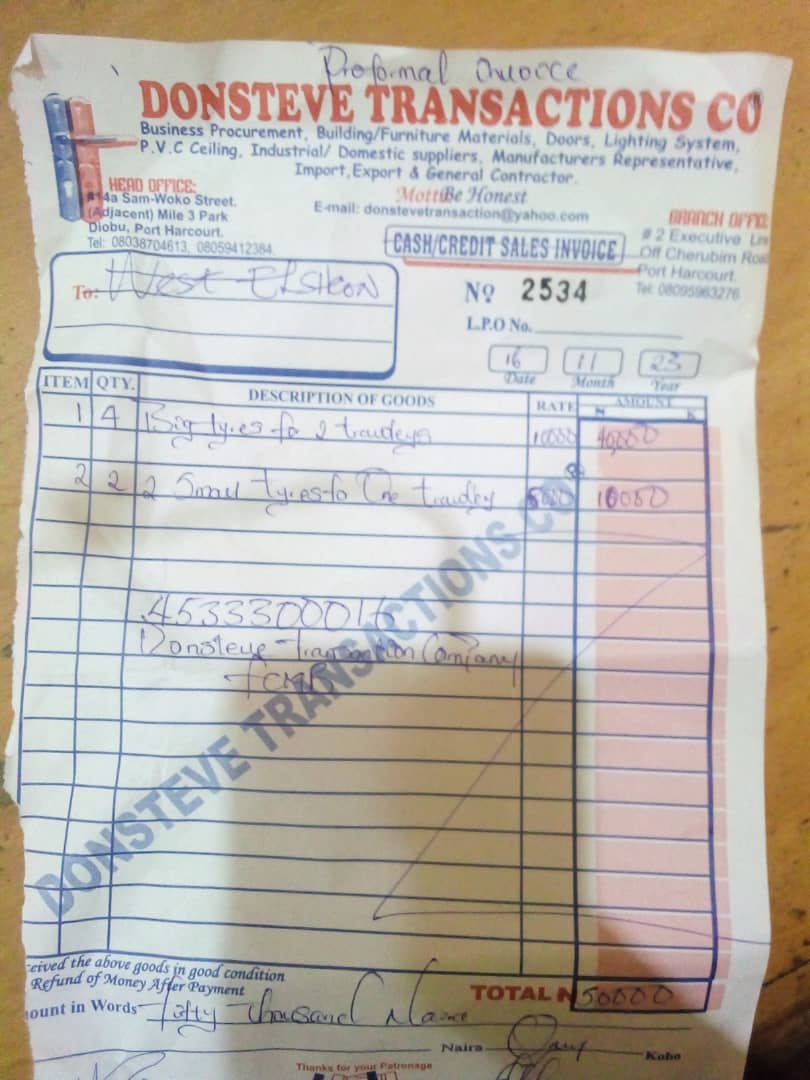 Proformal Invoice
DONSTEVE TRANSACTIONS CO
Business Procurement, Building/Furniture Materials, Doors, Lighting System,
P.V.C Ceiling, Industrial/ Domestic suppliers, Manufacturers Representative,
Import,Export & General Contractor.
Motto: Be Honest
E-mail: donstevetransaction@yahoo.com
HEAD OFFICE:
#14a Sam-Woko Street.
(Adjacent) Mile 3 Park
Diobu, Port Harcourt.
Tel: 08038704613, 08059412384
BRANCH OFFIC
# 2 Executive
Off Cherubim Road
Port Harcourt.
Tel: 08095963276
CASH/CREDIT SALES INVOICE
To: West
No 2534
L.P.O No.
16 11 23
Date Month Year
ITEM QTY. DESCRIPTION OF GOODS RATE AMOUNT
N K
1 4 Big tyres for 2 10000 40000
2 2 2 Small tyres for One 5000 10000
4533300016
Donsteve Transaction Company
FCMB
DONSTEVE TRANSACTIONS CO
eived the above goods in good condition
Refund of Money After Payment
TOTAL N 50000
ount in Words Fifty thousand Naira
Naira Only Kobo
Thanks for your Patronage